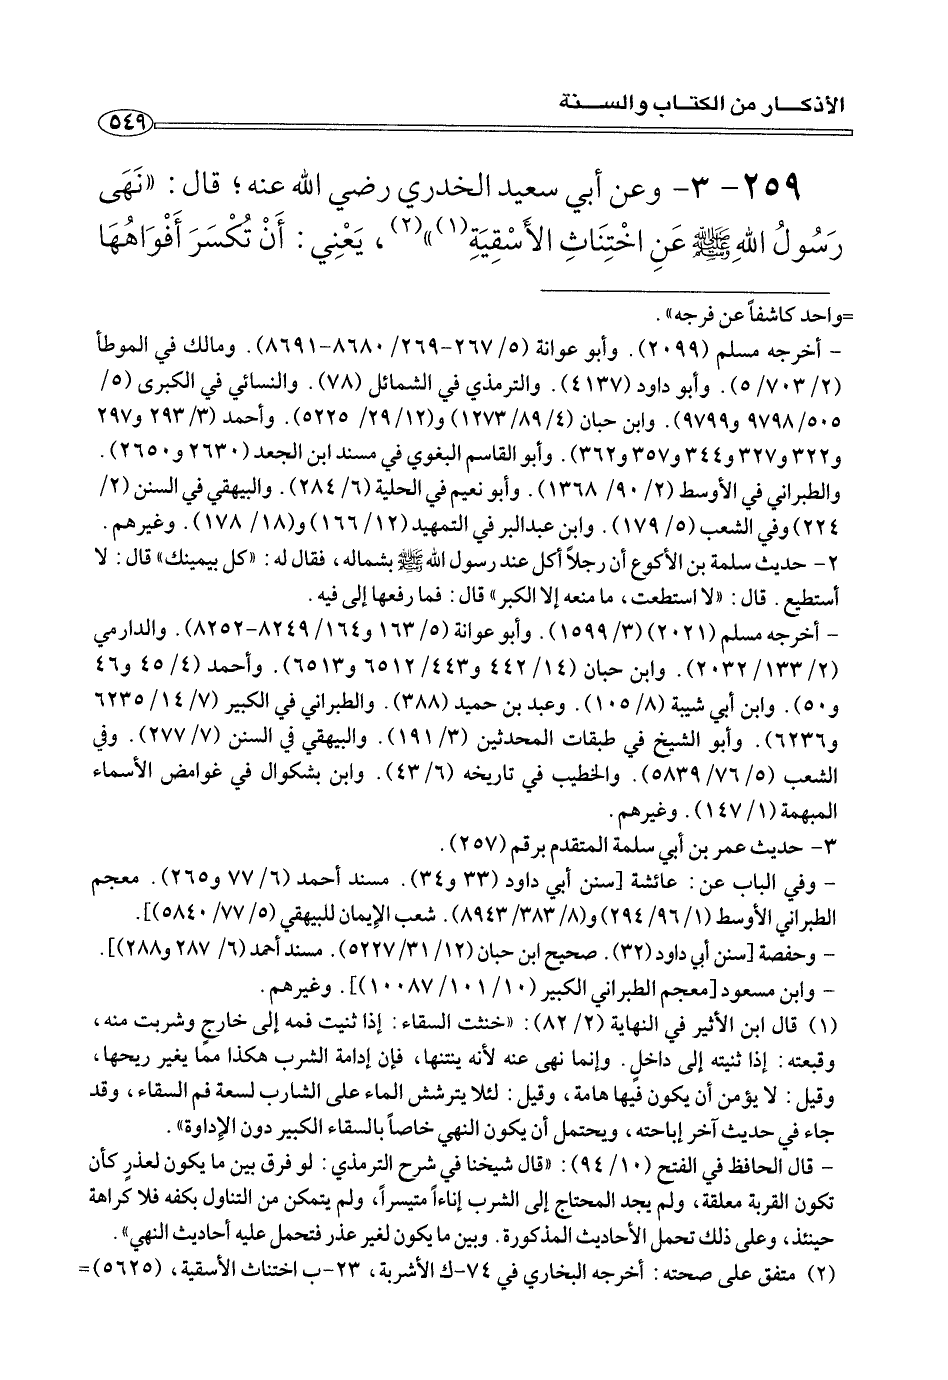 الأذكــار من الكتـاب والســنة
٥٤٩
٢٥٩ - ٣- وعن أبي سعيد الخدري رضي الله عنه؛ قال: «نَهَى
رَسُولُ اللهِ ﷺ عَنِ اخْتِنَاثِ الأَسْقِيَةِ(١)»(٢)، يَعْنِي: أَنْ تُكْسَرَ أَفْوَاهُهَا
=واحد كاشفاً عن فرجه».
- أخرجه مسلم (٢٠٩٩). وأبو عوانة (٥/ ٢٦٧-٢٦٩/ ٨٦٨٠-٨٦٩١). ومالك في الموطأ
(٢/ ٧٠٣/ ٥). وأبو داود (٤١٣٧). والترمذي في الشمائل (٧٨). والنسائي في الكبرى (٥/
٥٠٥/ ٩٧٩٨ و٩٧٩٩). وابن حبان (٤/ ٨٩/ ١٢٧٣) و(١٢/ ٢٩/ ٥٢٢٥). وأحمد (٣/ ٢٩٣ و٢٩٧
و٣٢٢ و٣٢٧ و٣٤٤ و٣٥٧ و٣٦٢). وأبو القاسم البغوي في مسند ابن الجعد (٢٦٣٠ و٢٦٥٠).
والطبراني في الأوسط (٢/ ٩٠/ ١٣٦٨). وأبو نعيم في الحلية (٦/ ٢٨٤). والبيهقي في السنن (٢/
٢٢٤) وفي الشعب (٥/ ١٧٩). وابن عبدالبر في التمهيد (١٢/ ١٦٦) و(١٨/ ١٧٨). وغيرهم.
٢- حديث سلمة بن الأكوع أن رجلاً أكل عند رسول الله ﷺ بشماله، فقال له: «كل بيمينك» قال: لا
أستطيع. قال: «لا استطعت، ما منعه إلا الكبر» قال: فما رفعها إلى فيه.
- أخرجه مسلم (٢٠٢١) (٣/ ١٥٩٩). وأبو عوانة (٥/ ١٦٣ و١٦٤/ ٨٢٤٩-٨٢٥٢). والدارمي
(٢/ ١٣٣/ ٢٠٣٢). وابن حبان (١٤/ ٤٤٢ و٤٤٣/ ٦٥١٢ و٦٥١٣). وأحمد (٤/ ٤٥ و٤٦
و٥٠). وابن أبي شيبة (٨/ ١٠٥). وعبد بن حميد (٣٨٨). والطبراني في الكبير (٧/ ١٤/ ٦٢٣٥
و٦٢٣٦). وأبو الشيخ في طبقات المحدثين (٣/ ١٩١). والبيهقي في السنن (٧/ ٢٧٧). وفي
الشعب (٥/ ٧٦/ ٥٨٣٩). والخطيب في تاريخه (٦/ ٤٣). وابن بشكوال في غوامض الأسماء
المبهمة (١/ ١٤٧). وغيرهم.
٣- حديث عمر بن أبي سلمة المتقدم برقم (٢٥٧).
- وفي الباب عن: عائشة [سنن أبي داود (٣٣ و٣٤). مسند أحمد (٦/ ٧٧ و٢٦٥). معجم
الطبراني الأوسط (١/ ٩٦/ ٢٩٤) و(٨/ ٣٨٣/ ٨٩٤٣). شعب الإيمان للبيهقي (٥/ ٧٧/ ٥٨٤٠)].
- وحفصة [سنن أبي داود (٣٢). صحيح ابن حبان (١٢/ ٣١/ ٥٢٢٧). مسند أحمد (٦/ ٢٨٧ و٢٨٨)].
- وابن مسعود [معجم الطبراني الكبير (١٠/ ١٠١/ ١٠٠٨٧)]. وغيرهم.
(١) قال ابن الأثير في النهاية (٢/ ٨٢): «خنثت السقاء: إذا ثنيت فمه إلى خارجٍ وشربت منه،
وقبعته: إذا ثنيته إلى داخلٍ. وإنما نهى عنه لأنه ينتنها، فإن إدامة الشرب هكذا مما يغير ريحها،
وقيل: لا يؤمن أن يكون فيها هامة، وقيل: لئلا يترشش الماء على الشارب لسعة فم السقاء، وقد
جاء في حديث آخر إباحته، ويحتمل أن يكون النهي خاصاً بالسقاء الكبير دون الإداوة».
- قال الحافظ في الفتح (١٠/ ٩٤): «قال شيخنا في شرح الترمذي: لو فرق بين ما يكون لعذرٍ كأن
تكون القربة معلقة، ولم يجد المحتاج إلى الشرب إناءاً متيسراً، ولم يتمكن من التناول بكفه فلا كراهة
حينئذ، وعلى ذلك تحمل الأحاديث المذكورة. وبين ما يكون لغير عذر فتحمل عليه أحاديث النهي».
(٢) متفق على صحته: أخرجه البخاري في ٧٤-ك الأشربة، ٢٣-ب اختناث الأسقية، (٥٦٢٥)=